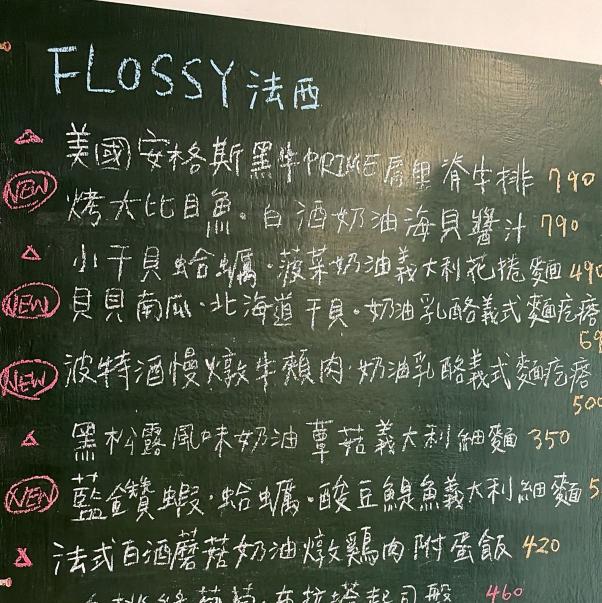 FLOSSY 法西
美國安格斯黑牛PRIME肩里脊牛排 790
NEW
烤大比目魚·白酒奶油海貝醬汁 790
小干貝蛤蠣·菠菜奶油義大利花捲麵 490
NEW 貝貝南瓜·北海道干貝·奶油乳酪義式麵疙瘩
69
NEW 波特酒慢燉牛頰肉·奶油乳酪義式麵疙瘩
500
黑松露風味奶油蕈菇義大利細麵 350
NEW 藍鑽蝦·蛤蠣·酸豆鯷魚義大利細麵 5
法式白酒蘑菇奶油燉雞肉附蛋飯 420
460